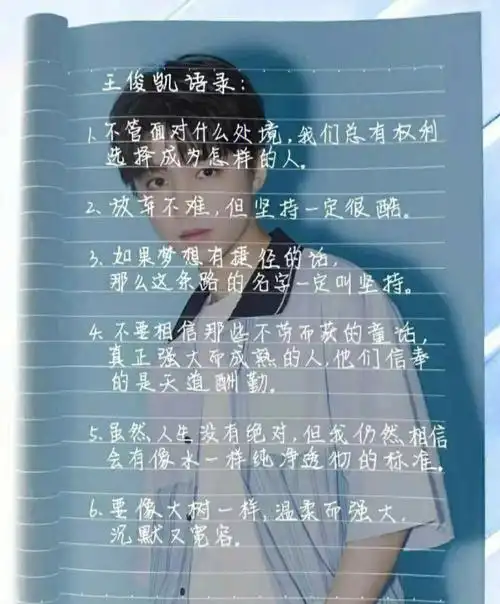 王俊凯语录：
1.不管面对什么处境，我们总有权利
选择成为怎样的人。
2.放弃不难，但坚持一定很酷。
3.如果梦想有捷径的话，
那么这条路的名字一定叫坚持。
4.不要相信那些不劳而获的童话，
真正强大而成熟的人，他们信奉
的是天道酬勤。
5.虽然人生没有绝对，但我仍然相信
会有像水一样纯净透彻的标准。
6.要像大树一样，温柔而强大，
沉默又宽容。